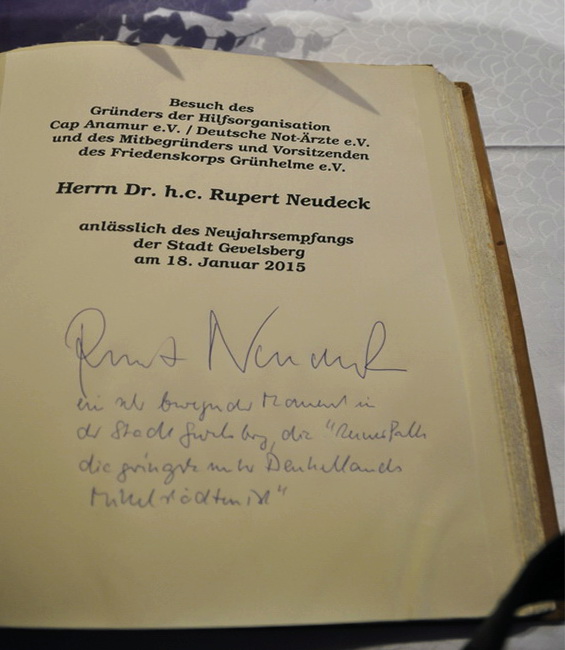 Besuch des
Gründers der Hilfsorganisation
Cap Anamur e.V. / Deutsche Not-Ärzte e.V.
und des Mitbegründers und Vorsitzenden
des Friedenskorps Grünhelme e.V.
Herrn Dr. h.c. Rupert Neudeck
anlässlich des Neujahrsempfangs
der Stadt Gevelsberg
am 18. Januar 2015
Rupert Neudeck
ein sehr bewegender Moment in
der Stadt Gevelsberg, die "
die geringste unter Deutschlands
Mittelstädten ist"